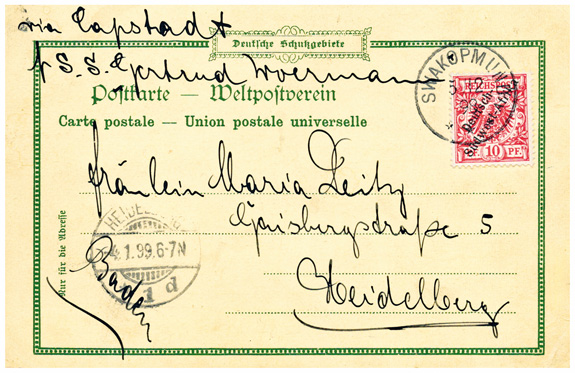 via Capstadt
Deutsche Schutzgebiete
p S.S. Gertrud Woermann
Postkarte — Weltpostverein
Carte postale — Union postale universelle
SWAKOPMUND
REICHSPOST
Deutsch-
Südwest-Afrika
10 PF.
Fräulein Maria Deitz
Gaisbergstraße 5
Heidelberg
Baden
Nur für die Adresse
HEIDELBERG
4.1.99.6-7N
1 d